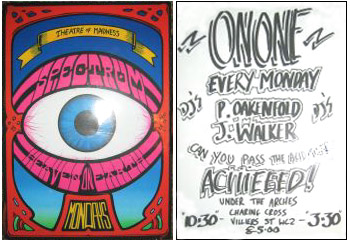 THEATRE OF MADNESS
SPECTRUM
HEAVEN ON EARTH
MONDAYS
ONONE
EVERY MONDAY
DJ'S P. OAKENFOLD DJ'S
J. WALKER
CAN YOU PASS THE
UNDER THE ARCHES
CHARING CROSS
10:30 - VILLIERS ST WC2 - 3:30
£5.00